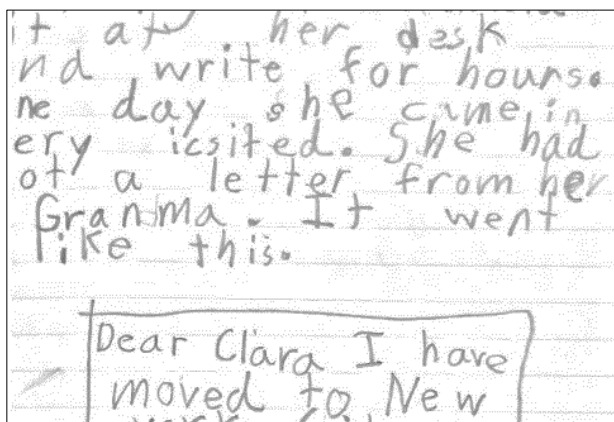 it at her desk
nd write for hours.
ne day she came in
ery icsited. She had
ot a letter from her
Granma. It went
like this.
Dear Clara I have
moved to New